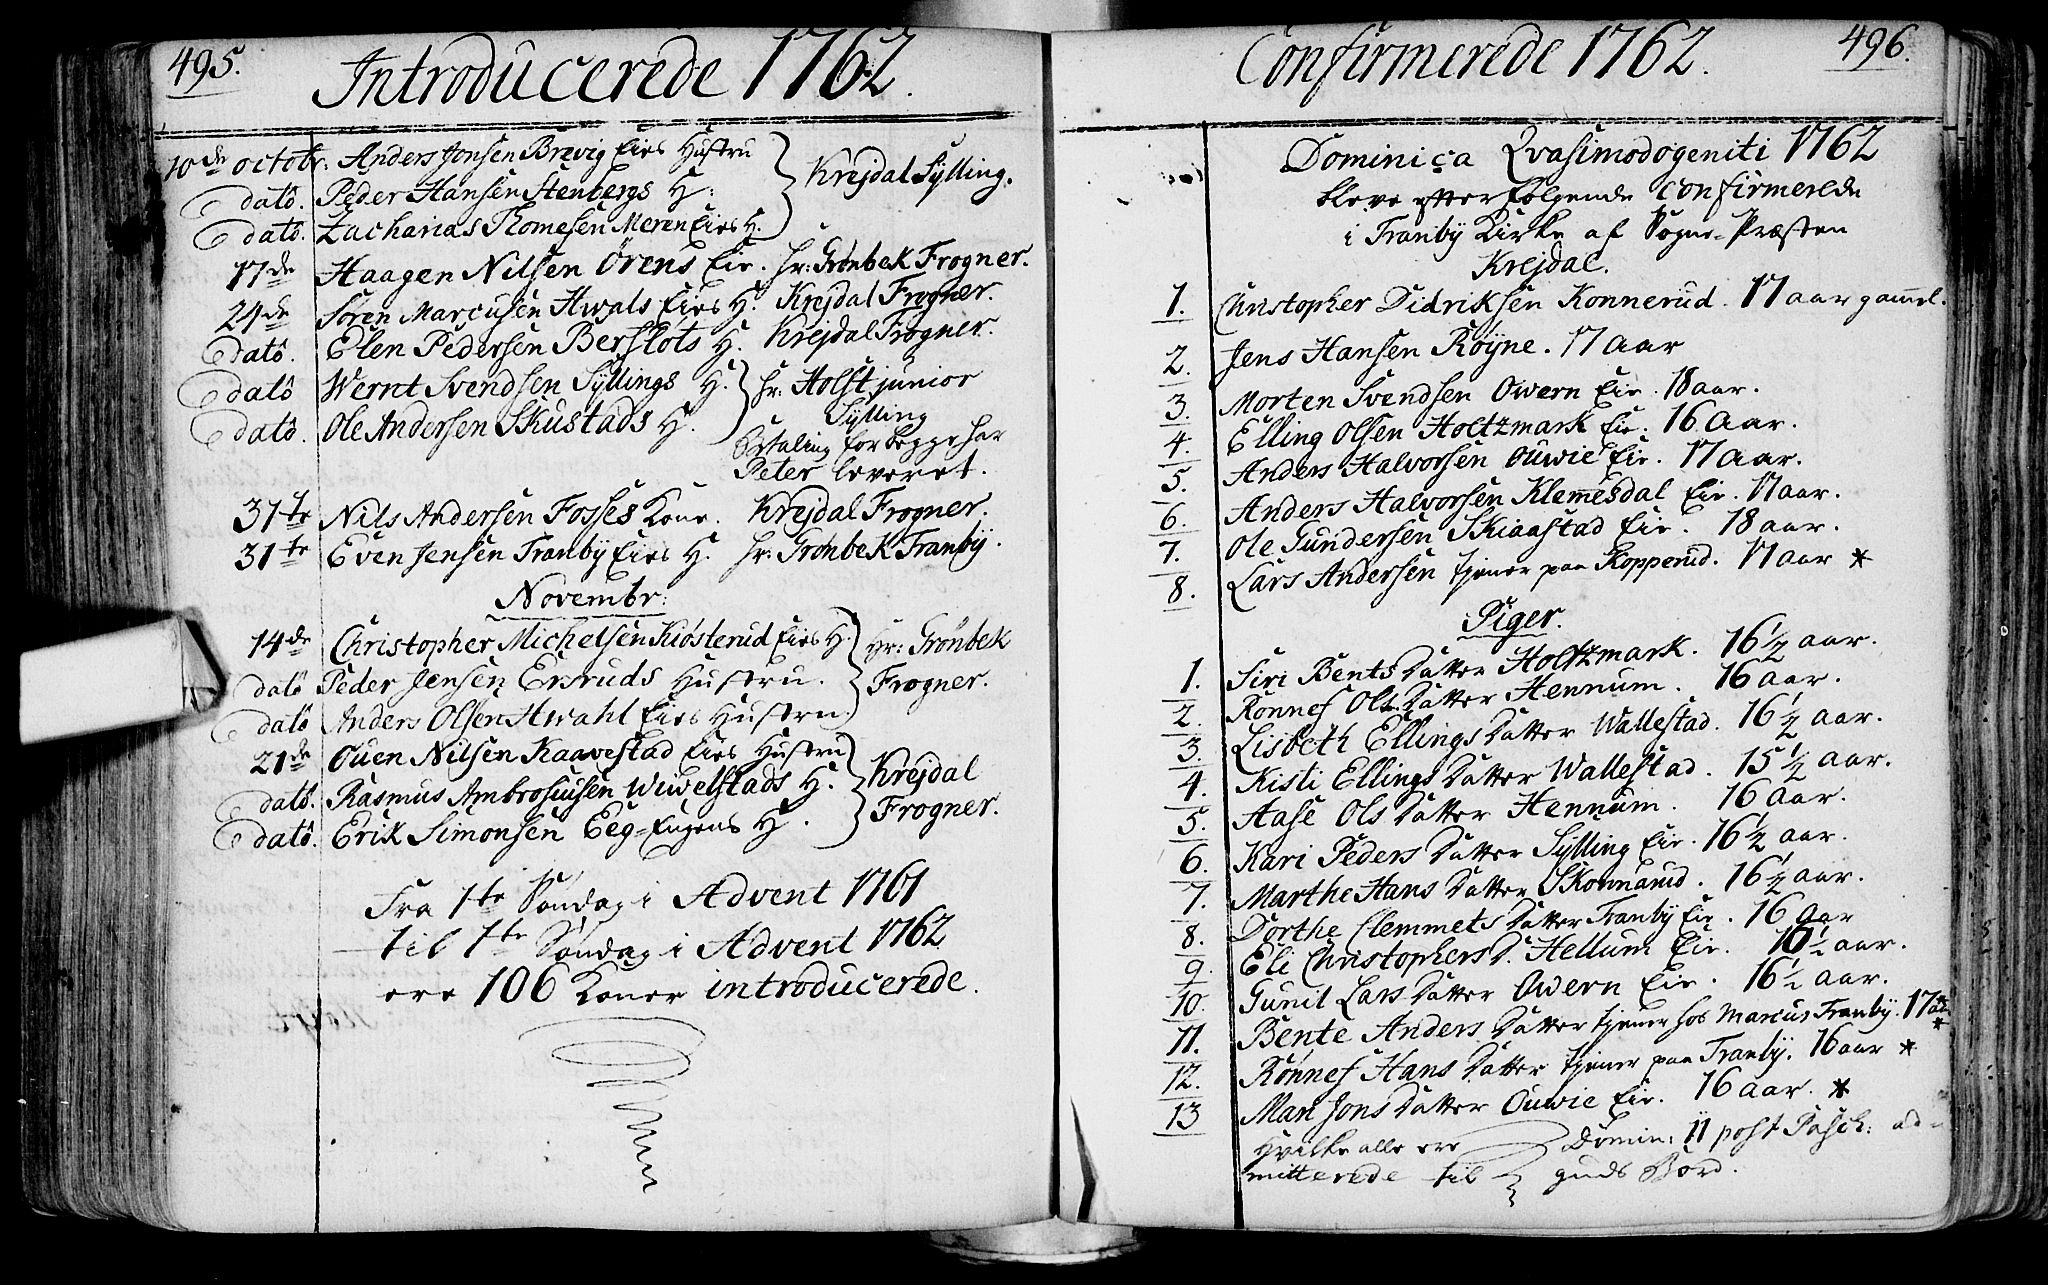 495.
Introducerede 1762.
10de octobr: Anders Jonsen Brevig Eies Hustru
dato. Peder Hansen Stenbergs H:
dato. Zacharias Thomesen Meren Eies H.
Krejdal Sylling.
17de Haagen Nilsen Örens Eie. hr: Grönbek Frogner.
24de Sören Marcusen Hwals Eies H. Krejdal Frogner.
dato. Elen Pedersen Berslots H. Krejdal Frogner.
dato Wernt Svendsen Syllings H.
dato. Ole Andersen Skustads H.
hr: Holst junior
Sylling
Betaling for begge har
Peter leveret.
31te Nils Andersen Fosses Kone. Krejdal Frogner.
31te Even Jensen Tranby Eies H. hr: Grönbek Tranby.
Novembr:
14de Christopher Michelsen Kiösterud Eies H.
dato Peder Jensen Ersruds Hustru.
dato Anders Olsen Hwahl Eies Hustru.
Hr: Grönbek
Frogner.
21de Ouen Nilsen Kaavestad Eies Hustru
dato. Rasmus Ambrosiusen Wiwelstads H.
dato. Erik Simonsen Eeg-Engens H.
Krejdal
Frogner.
Fra 1te Söndag i Advent 1761
til 1te Söndag i Advent 1762
ere 106 Koner introducerede.
496.
Confirmerede 1762.
Dominica Qvasimodogeniti 1762
bleve efterfölgende confirmerede
i Tranby Kirke af Sogne-Præsten
Krejdal.
1. Christopher Didriksen Konnerud. 17 aar gamel.
2. Jens Hansen Röyne. 17 Aar
3. Morten Svendsen Owern Eie. 18 aar.
4. Elling Olsen Holtzmark Eie. 16 Aar.
5. Anders Halvorsen Ouwie Eie. 17 Aar.
6. Anders Halvorsen Klemesdal Eie. 17 aar.
7. Ole Gundersen Skiaastad Eie. 18 aar.
8. Lars Andersen tjener paa Kopperud. 17 aar *
Piger.
1. Siri Bents Datter Holtzmark. 16 1/2 aar.
2. Ronnef Ols Datter Hennum. 16 Aar.
3. Lisbeth Ellings Datter Wallestad. 16 1/2 aar.
4. Kisti Ellings Datter Wallestad. 15 1/2 aar.
5. Aase Ols Datter Hennum. 16 Aar.
6. Kari Peders Datter Sylling Eie. 16 1/2 aar.
7. Marthe Hans Datter Skonnarud. 16 1/2 aar.
8. Dorthe Clemmets Datter Tranby Eie. 16 Aar
9. Eli Christophers D. Hellum Eie. 16 1/2 aar.
10. Gunil Lars Datter Owern Eie. 16 1/2 aar.
11. Bente Anders Datter tjener hos Marcus Tranby. 17 aar *
12. Rönnef Hans Datter tjener paa Tranby. 16 aar *
13 Mari Jons Datter Ouwie Eie. 16 Aar. *
Hvilke alle ere Domin: II post Pasch: ad-
mitterede til guds Bord.